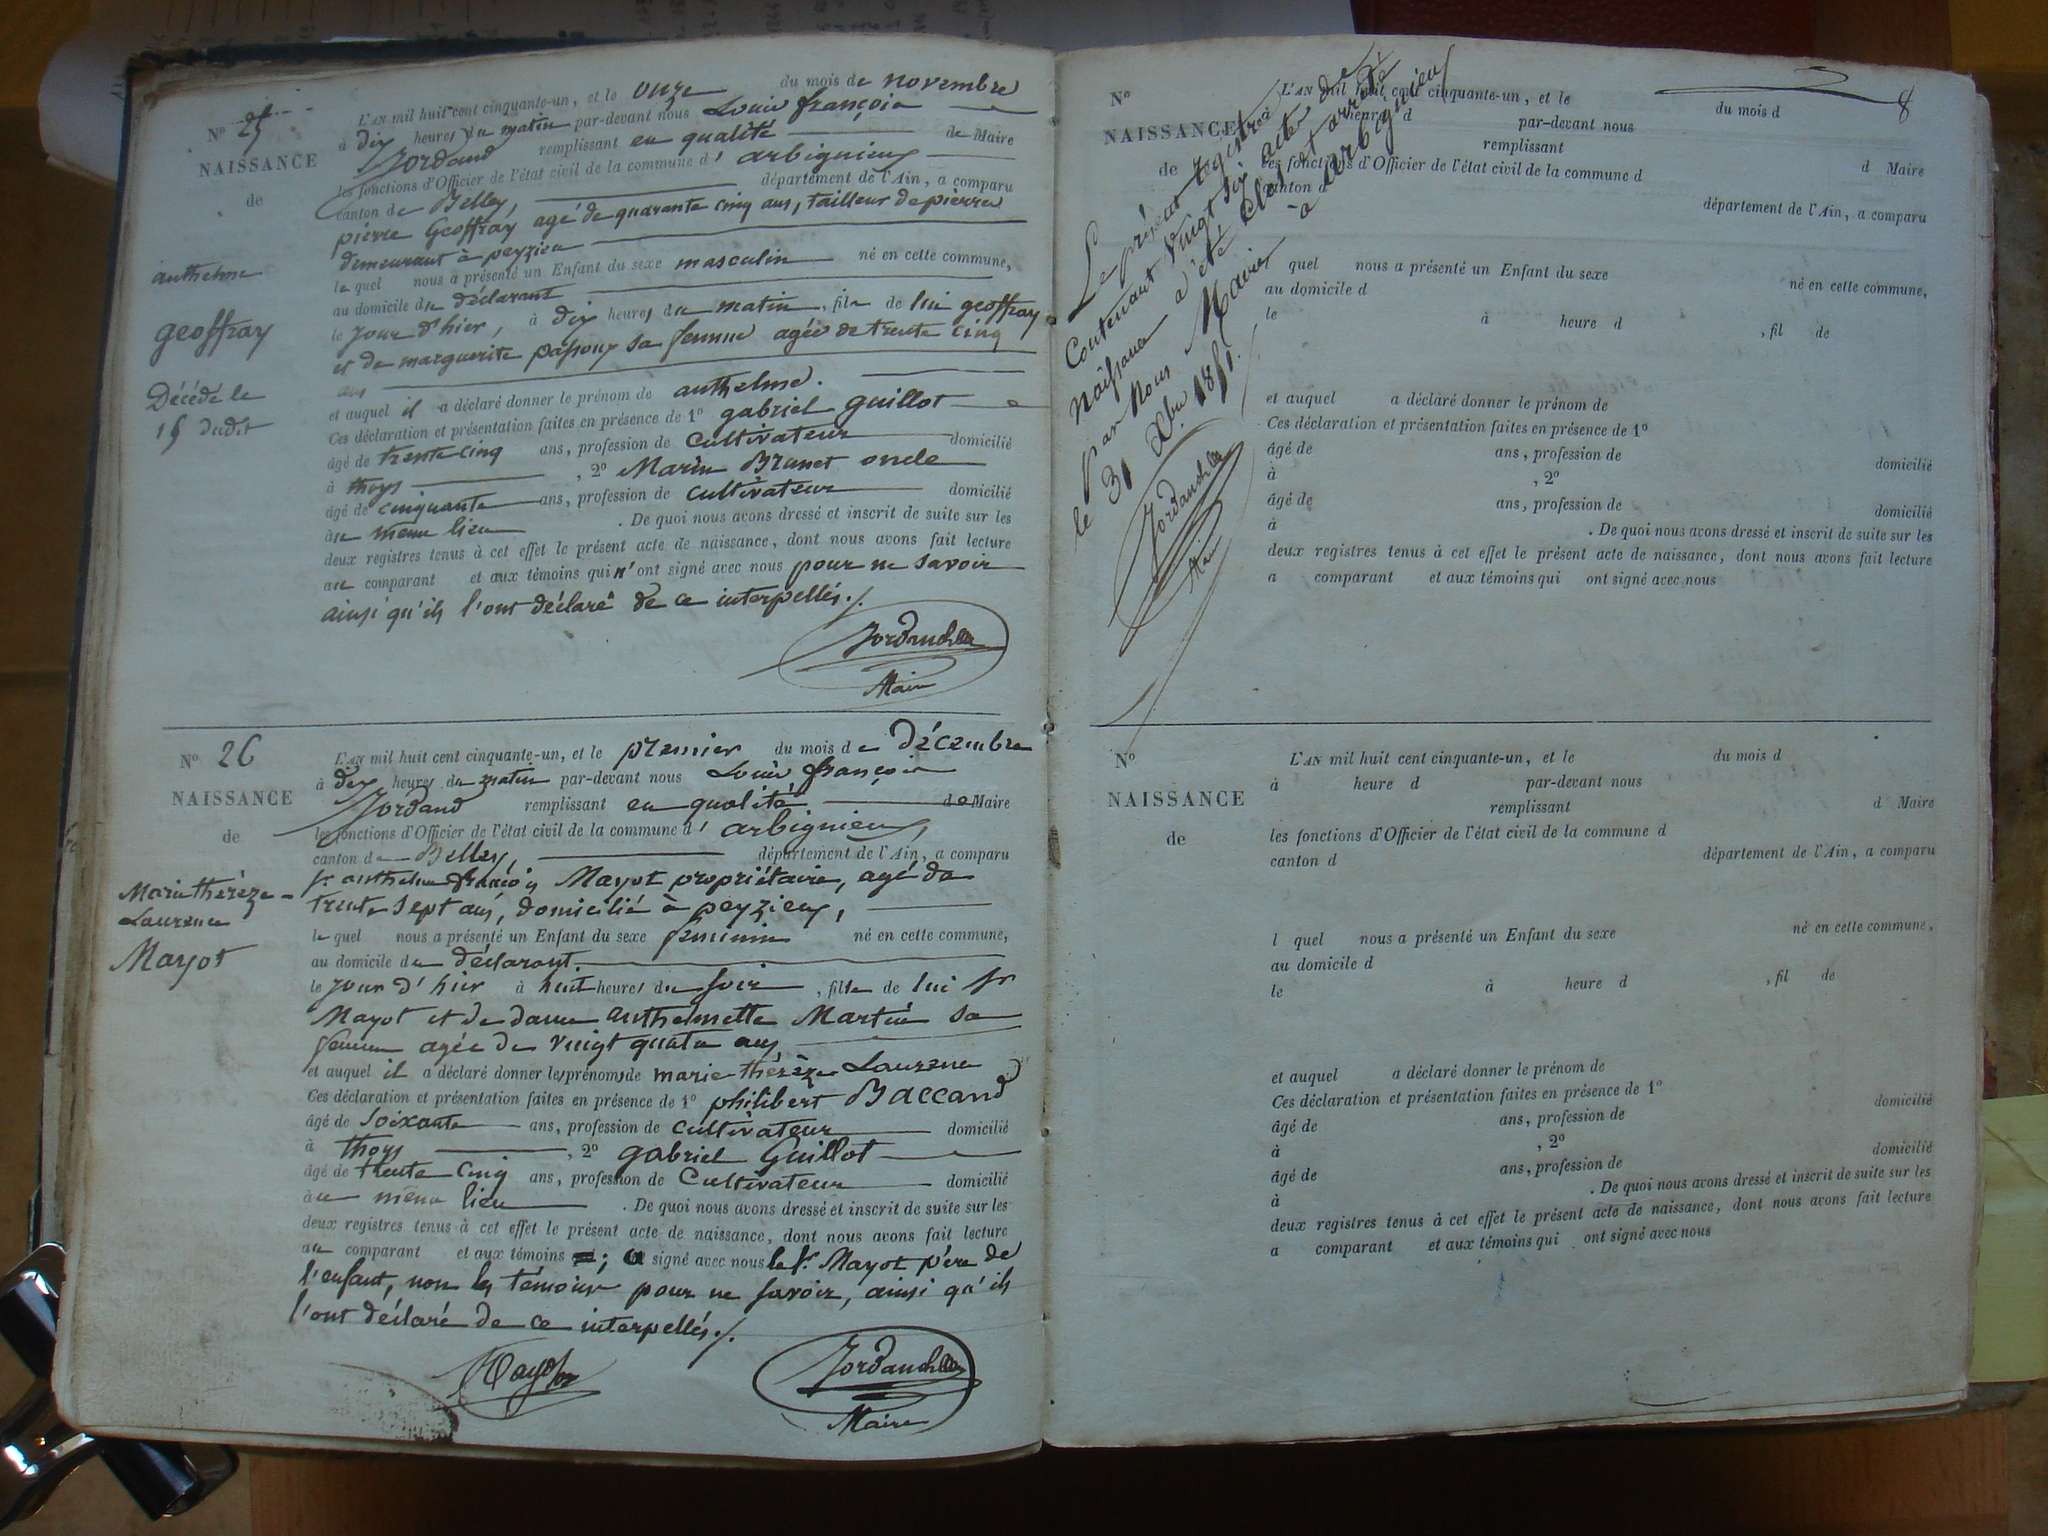 N° 25
NAISSANCE
de
anthelme
geoffray
Décédé le
15 dudit
L'AN mil huit cent cinquante-un, et le onze du mois de novembre
à dix heures du matin par-devant nous Louis françois
Jordand remplissant en qualité de Maire
les fonctions d'Officier de l'état civil de la commune d'arbignieu
canton de Belley, département de l'Ain, a comparu
pierre Geoffray agé de quarante cinq ans, tailleur de pierre
demeurant à peyzieu
le quel nous a présenté un Enfant du sexe masculin né en cette commune,
au domicile du déclarant
le jour d'hier, à dix heures du matin, fils de lui geoffray
et de marguerite passoux sa femme agée de trente cinq
ans
et auquel il a déclaré donner le prénom de anthelme.
Ces déclaration et présentation faites en présence de 1° gabriel guillot
âgé de trente cinq ans, profession de cultivateur domicilié
à thoys , 2° Marin Brunet oncle
âgé de cinquante ans, profession de cultivateur domicilié
au même lieu . De quoi nous avons dressé et inscrit de suite sur les
deux registres tenus à cet effet le présent acte de naissance, dont nous avons fait lecture
au comparant et aux témoins qui n'ont signé avec nous pour ne savoir
ainsi qu'ils l'ont déclaré de ce interpellés./.
Maire
N° 26
NAISSANCE
de
Marie thérèze-
Laurence
Mayot
L'AN mil huit cent cinquante-un, et le premier du mois de Décembre
à dix heures du matin par-devant nous Louis françois
Jordand remplissant en qualité de Maire
les fonctions d'Officier de l'état civil de la commune d'arbignieu,
canton de Belley, département de l'Ain, a comparu
sr anthelme françois Mayot propriétaire, agé de
trente sept ans, domicilié à peyzieu,
le quel nous a présenté un Enfant du sexe féminin né en cette commune,
au domicile du déclarant.
le jour d'hier à huit heures du soir, fille de lui sr
Mayot et de dame anthelmette Martin sa
femme agée de vingt quatre ans
et auquel il a déclaré donner les prénoms de marie thérèze Laurence
Ces déclaration et présentation faites en présence de 1° philibert Baccard
âgé de soixante ans, profession de cultivateur domicilié
à thoys , 2° gabriel Guillot
âgé de trente cinq ans, profession de Cultivateur domicilié
au même lieu . De quoi nous avons dressé et inscrit de suite sur les
deux registres tenus à cet effet le présent acte de naissance, dont nous avons fait lecture
au comparant et aux témoins ; a signé avec nous le sr Mayot père de
l'enfant, non les témoins pour ne savoir, ainsi qu'ils
l'ont déclaré de ce interpellés./.
Mayot
Maire
8
Le présent registre
Contenant vingt six actes de
naissance a été clos et arrêté
par Nous Maire à arbignieu
le 31 Xbre 1851.
Maire
N°
NAISSANCE
de
L'AN mil huit cent cinquante-un, et le du mois d
à heure d par-devant nous
remplissant d Maire
les fonctions d'Officier de l'état civil de la commune d
canton d département de l'Ain, a comparu
l quel nous a présenté un Enfant du sexe né en cette commune,
au domicile d
le à heure d , fil de
et auquel a déclaré donner le prénom de
Ces déclaration et présentation faites en présence de 1°
âgé de ans, profession de domicilié
à , 2°
âgé de ans, profession de domicilié
à . De quoi nous avons dressé et inscrit de suite sur les
deux registres tenus à cet effet le présent acte de naissance, dont nous avons fait lecture
a comparant et aux témoins qui ont signé avec nous
N°
NAISSANCE
de
L'AN mil huit cent cinquante-un, et le du mois d
à heure d par-devant nous
remplissant d Maire
les fonctions d'Officier de l'état civil de la commune d
canton d département de l'Ain, a comparu
l quel nous a présenté un Enfant du sexe né en cette commune,
au domicile d
le à heure d , fil de
et auquel a déclaré donner le prénom de
Ces déclaration et présentation faites en présence de 1°
âgé de ans, profession de domicilié
à , 2°
âgé de ans, profession de domicilié
à . De quoi nous avons dressé et inscrit de suite sur les
deux registres tenus à cet effet le présent acte de naissance, dont nous avons fait lecture
a comparant et aux témoins qui ont signé avec nous